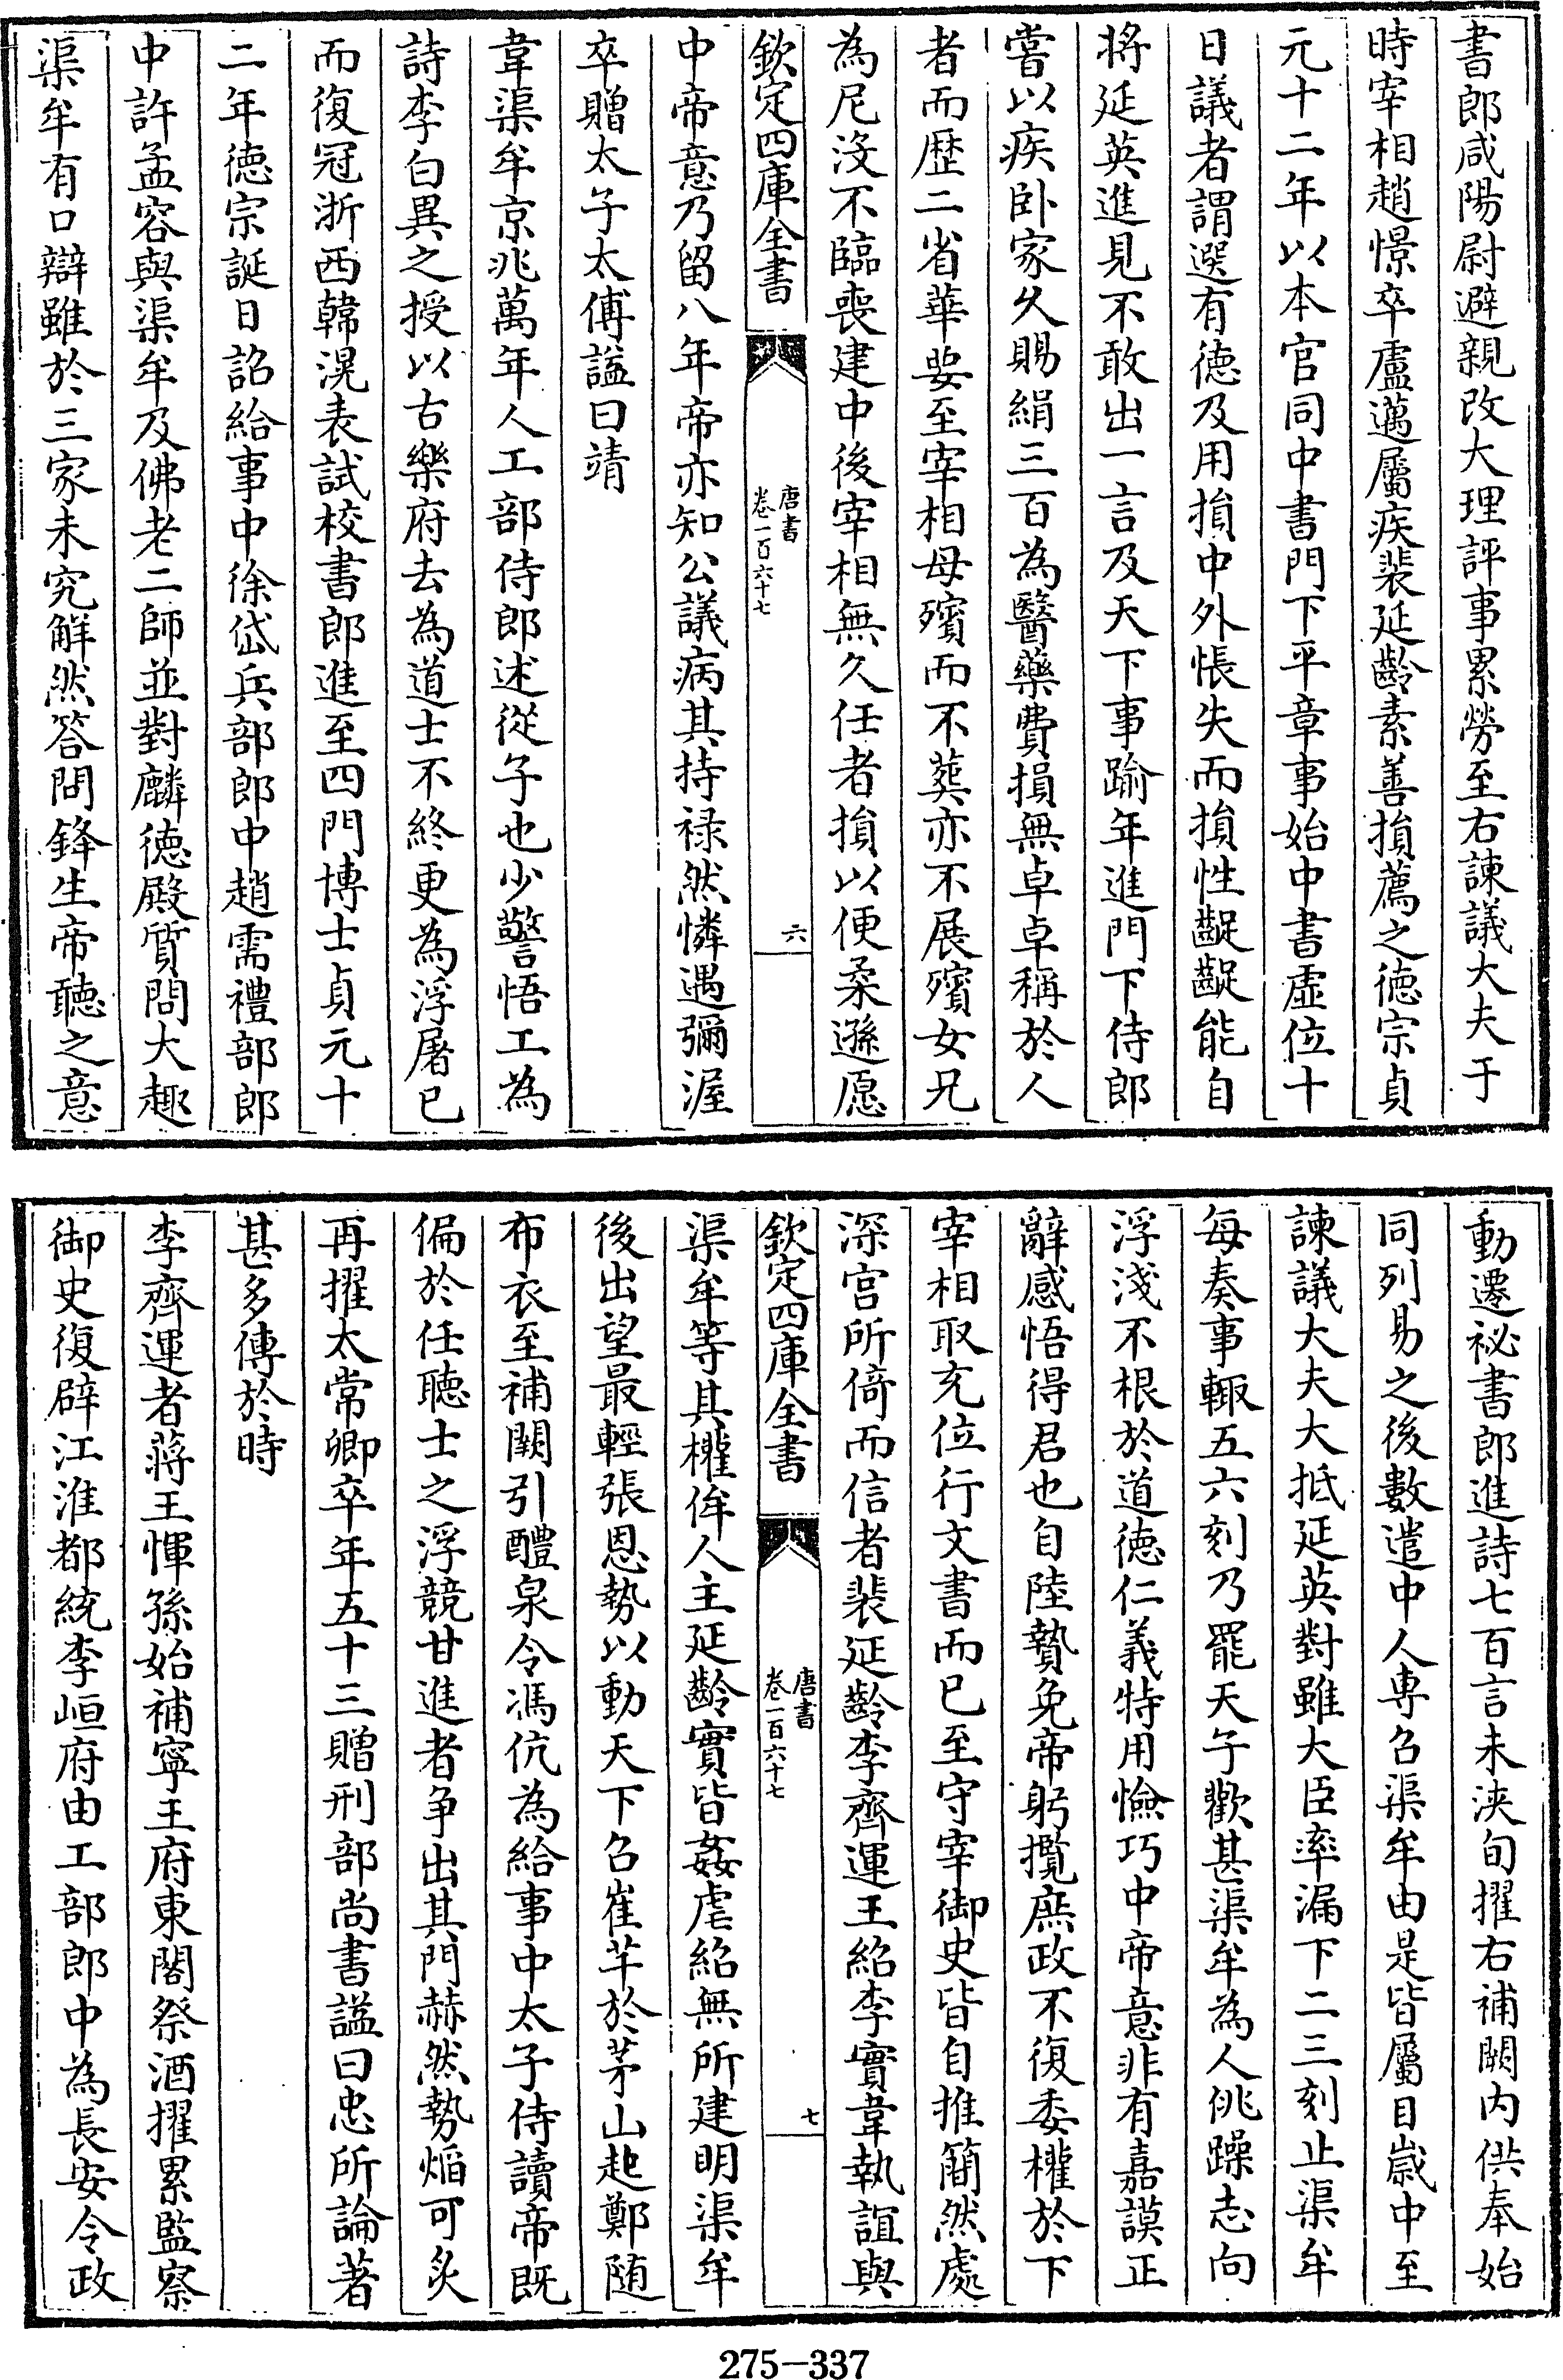 書郎咸陽尉避親改大理評事累勞至右諫議大夫于
時宰相趙憬卒盧邁屬疾裴延齡素善損薦之德宗貞
元十二年以本官同中書門下平章事始中書虛位十
日議者謂選有德及用損中外悵失而損性齪齪能自
將延英進見不敢出一言及天下事踰年進門下侍郎
嘗以疾卧家久賜絹三百為醫藥費損無卓卓稱於人
者而歴二省華要至宰相母殯而不葬亦不展殯女兄
為尼沒不臨喪建中後宰相無久任者損以便柔遜愿
欽定四庫全書
唐書
卷一百六十七
六
中帝意乃留八年帝亦知公議病其持禄然憐遇彌渥
卒贈太子太傅諡曰靖
韋渠牟京兆萬年人工部侍郎述從子也少警悟工為
詩李白異之授以古樂府去為道士不終更為浮屠已
而復冠浙西韓滉表試校書郎進至四門博士貞元十
二年德宗誕日詔給事中徐岱兵部郎中趙需禮部郎
中許孟容與渠牟及佛老二師並對麟德殿質問大趣
渠牟有口辯雖於三家未究解然答問鋒生帝聽之意
動遷祕書郎進詩七百言未浹旬擢右補闕内供奉始
同列易之後數遣中人專召渠牟由是皆屬目嵗中至
諫議大夫大抵延英對雖大臣率漏下二三刻止渠牟
每奏事輒五六刻乃罷天子歡甚渠牟為人佻躁志向
浮淺不根於道德仁義特用憸巧中帝意非有嘉謨正
辭感悟得君也自陸贄免帝躬攬庶政不復委權於下
宰相取充位行文書而已至守宰御史皆自推簡然處
深宫所倚而信者裴延齡李齊運王紹李實韋執誼與
欽定四庫全書
唐書
卷一百六十七
七
渠牟等其權侔人主延齡實皆姦虐紹無所建明渠牟
後出望最輕張恩勢以動天下召崔芊於茅山起鄭随
布衣至補闕引醴泉令馮伉為給事中太子侍讀帝既
偏於任聽士之浮競甘進者争出其門赫然勢焰可炙
再擢太常卿卒年五十三贈刑部尚書諡曰忠所論著
甚多傳於時
李齊運者蔣王惲孫始補寧王府東閤祭酒擢累監察
御史復辟江淮都統李峘府由工部郎中為長安令政
275-337